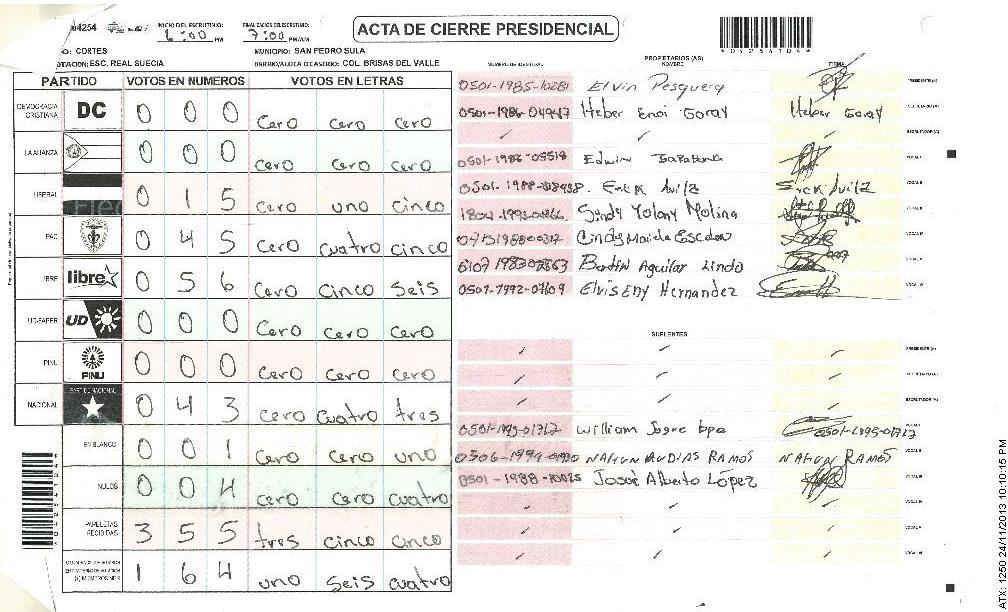 04254 INICIO DEL ESCRUTINIO: 6:00 PM FINALIZACIÓN DEL ESCRUTINIO: 7:00 PM/AM ACTA DE CIERRE PRESIDENCIAL
O: CORTES MUNICIPIO: SAN PEDRO SULA
OTACION: ESC. REAL SUECIA BARRIO/ALDEA O CASERIO: COL. BRISAS DEL VALLE
PARTIDO VOTOS EN NUMEROS VOTOS EN LETRAS
DEMOCRACIA CRISTIANA DC 0 0 0 Cero cero cero
LA ALIANZA 0 0 0 cero cero cero
LIBERAL 0 1 5 cero uno cinco
PAC 0 4 5 cero cuatro cinco
IBRE libre 0 5 6 cero cinco seis
UD-FAPER UD 0 0 0 cero cero cero
PINU PINU 0 0 0 cero cero cero
NACIONAL PARTIDO NACIONAL 0 4 3 cero cuatro tres
EN BLANCO 0 0 1 cero cero uno
NULOS 0 0 4 cero cero cuatro
PAPELETAS RECIBIDAS 3 5 5 tres cinco cinco
1 6 4 uno seis cuatro
PROPIETARIOS (AS)
NUMERO DE IDENTIDAD NOMBRE FIRMA
0501-1985-10281 Elvin Pesquera PRESIDENTE (A)
0501-1986-04947 Heber Enoi Goray Heber Goray SECRETARIO (A)
ESCRUTADOR (A)
0501-1986-05518 Edwin VOCAL I
Erick Avila Erick Avila VOCAL II
Sindy Yolany Molina
Cindy Mariela Escalon
Bertin Aguilar Lindo
0501-1992-07609 Elvis Eny Hernandez
SUPLENTES
PRESIDENTE (A)
SECRETARIO (A)
ESCRUTADOR (A)
0501-1995-01717 William Josue 0501-1995-01717 VOCAL I
NAHUN AUDIAS RAMOS NAHUN RAMOS
0501-1988-10025 Josué Alberto López
ATX: 1250 24/11/2013 10:10:15 PM